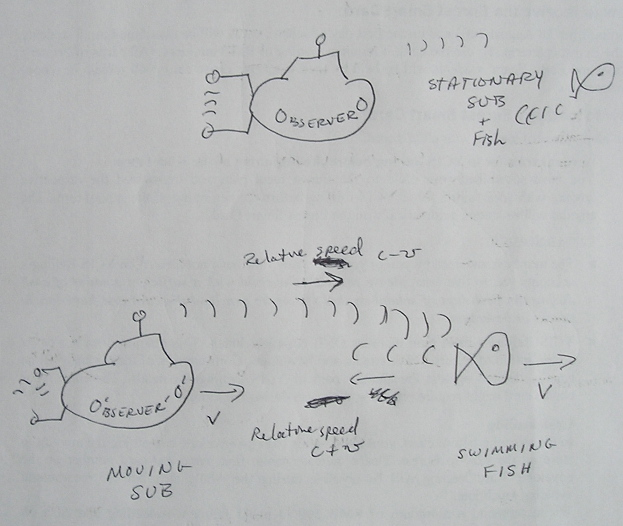 OBSERVER O
STATIONARY
SUB
+
Fish
Relative speed c-v
O'BSERVER' O'
V
V
Relative speed
c+v
MOVING
SUB
SWIMMING
FISH